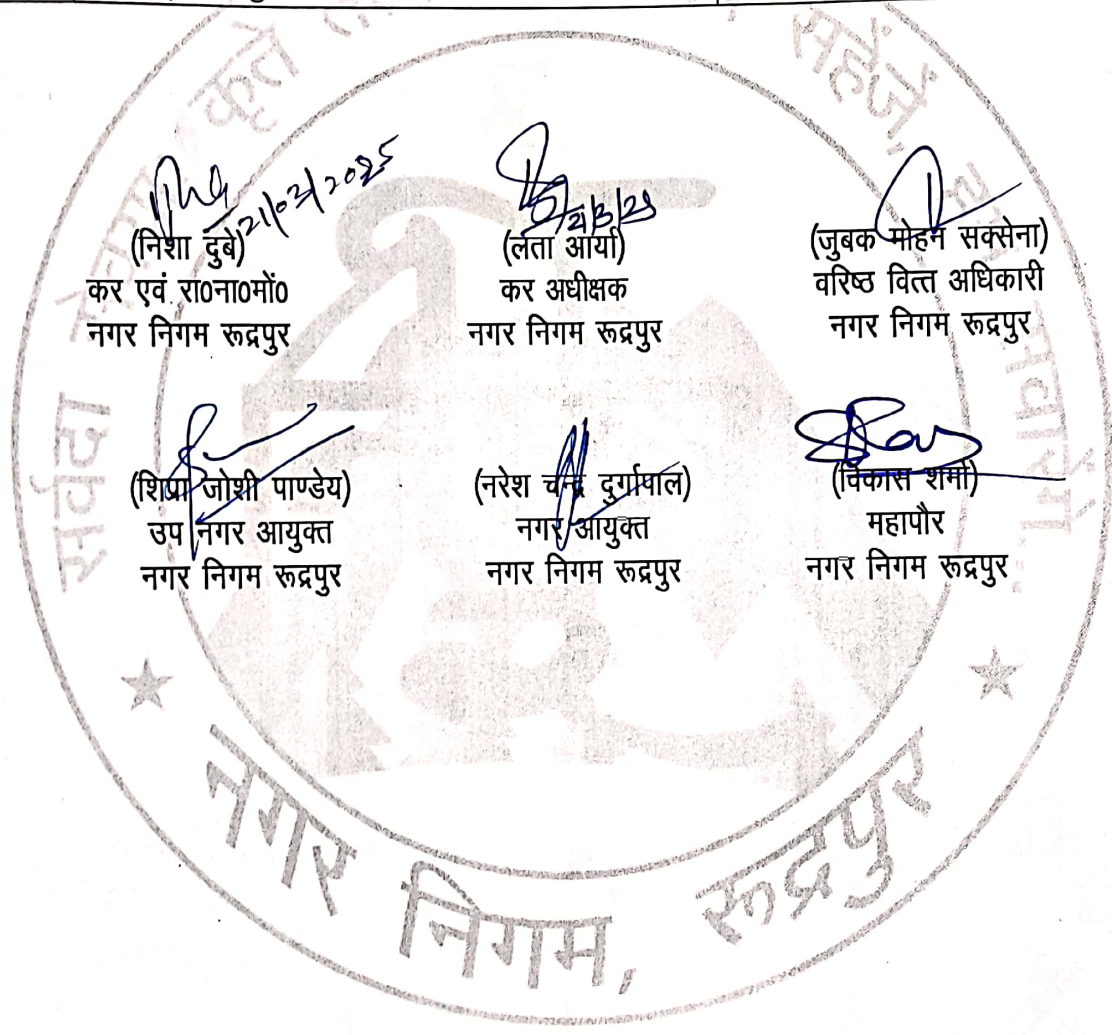 (निशा दुबे) 21/03/2025
कर एवं रा0ना0मों0
नगर निगम रूद्रपुर
(लता आर्या) 21/3/25
कर अधीक्षक
नगर निगम रूद्रपुर
(जुबक मोहन सक्सेना)
वरिष्ठ वित्त अधिकारी
नगर निगम रूद्रपुर
(शिप्रा जोशी पाण्डेय)
उप नगर आयुक्त
नगर निगम रूद्रपुर
(नरेश चन्द्र दुर्गापाल)
नगर आयुक्त
नगर निगम रूद्रपुर
(विकास शर्मा)
महापौर
नगर निगम रूद्रपुर
सर्वदा
कृते
सहेंजें,
नगर निगम, रूद्रपुर